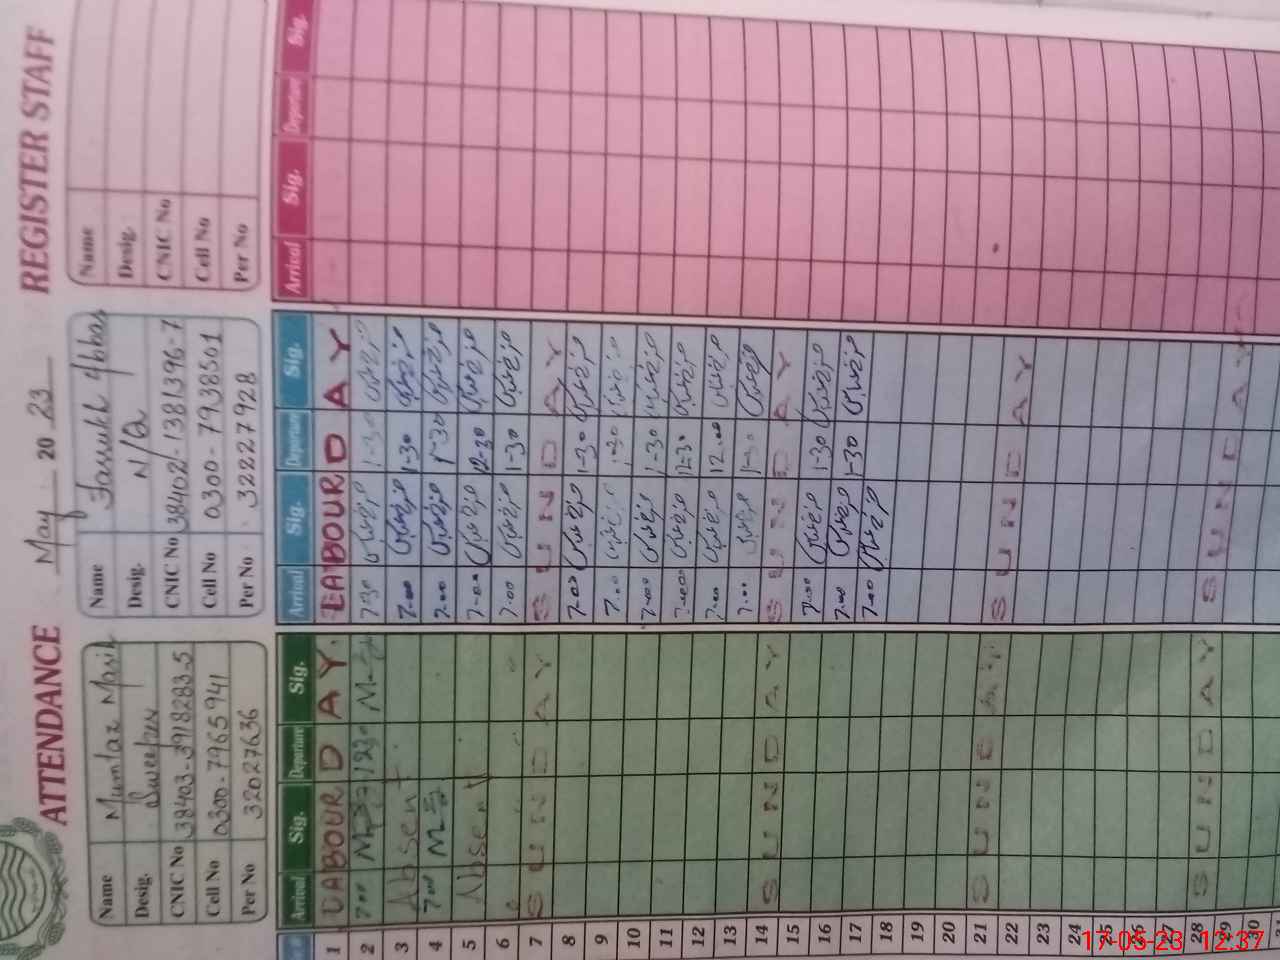 ATTENDANCE May 20 23 REGISTER STAFF
Name Mumtaz Masih
Desig. Sweeper
CNIC No 38403-3918283-5
Cell No 0300-7965941
Per No 32027636
Name Farrukh Abbas
Desig. N/Q
CNIC No 38402-1381396-7
Cell No 0300-7938501
Per No 32227928
Name
Desig.
CNIC No
Cell No
Per No
Arrival Sig. Departure Sig. Arrival Sig. Departure Sig. Arrival Sig. Departure Sig.
1 LABOUR DAY LABOUR DAY
2 7.00 1230 7.30 1-30
3 Absent 7.00 1-30
4 7.00 7.00 1-30
5 Absent 7-00 12-30
6 7.00 1-30
7 SUNDAY SUNDAY
8 7.00 1-30
9 7.00 1-30
10 7-00 1-30
11 7-00 12-30
12 7.00 12.00
13 7.00 1-30
14 SUNDAY SUNDAY
15 7-00 1-30
16 7.00 1-30
17 7-00
18
19
20
21 SUNDAY SUNDAY
22
23
24
25
26
27
28 SUNDAY SUNDAY
29
30
17-05-23 12:37